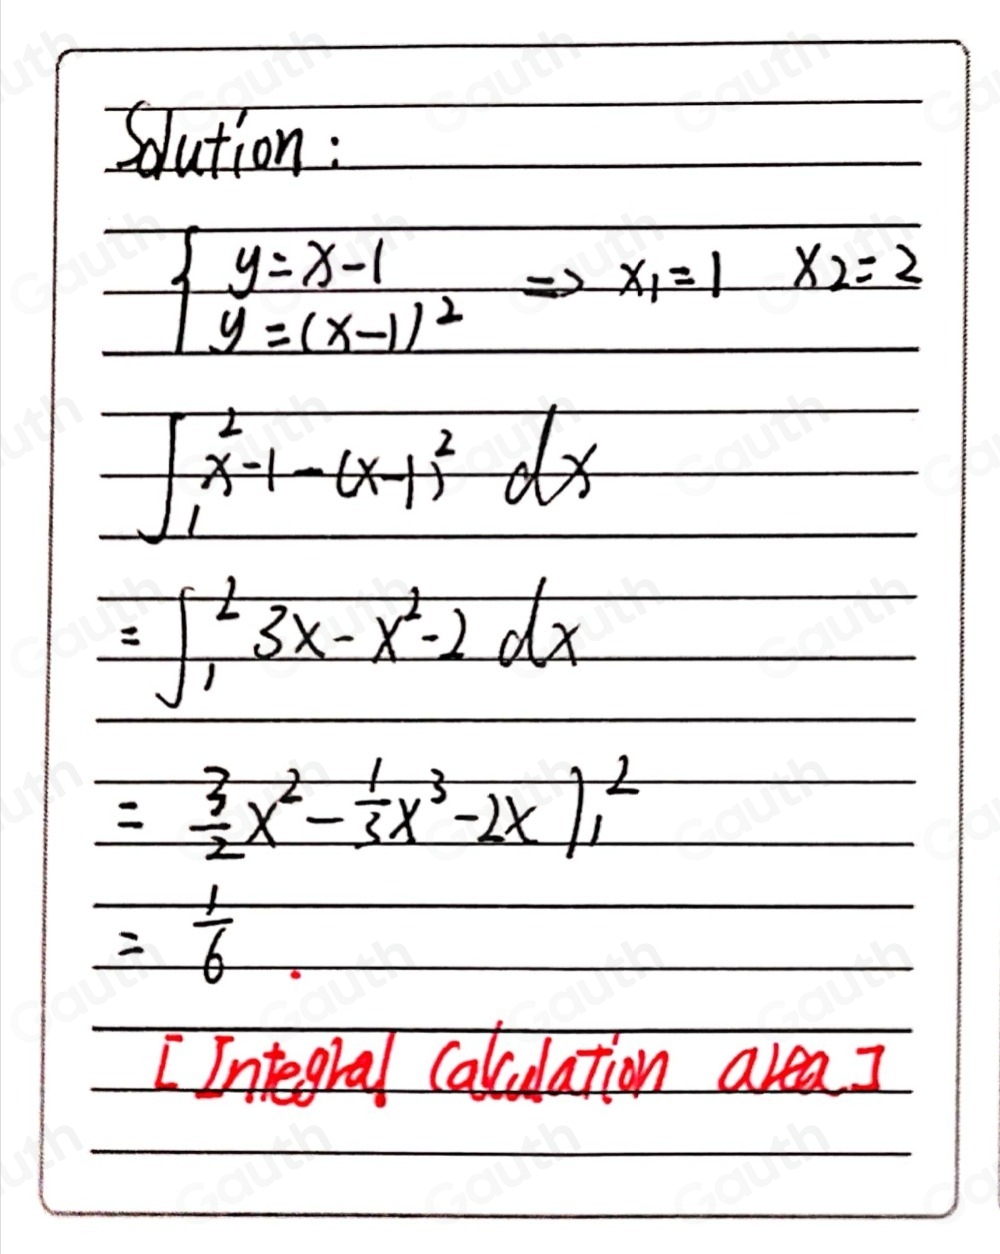 Solution:
{ y=x-1
y=(x-1)² => x₁=1 x₂=2
∫₁² x-1-(x-1)² dx
= ∫₁² 3x-x²-2 dx
= 3/2 x² - 1/3 x³ - 2x |₁²
= 1/6 .
[Integral Calculation area]
Gauth